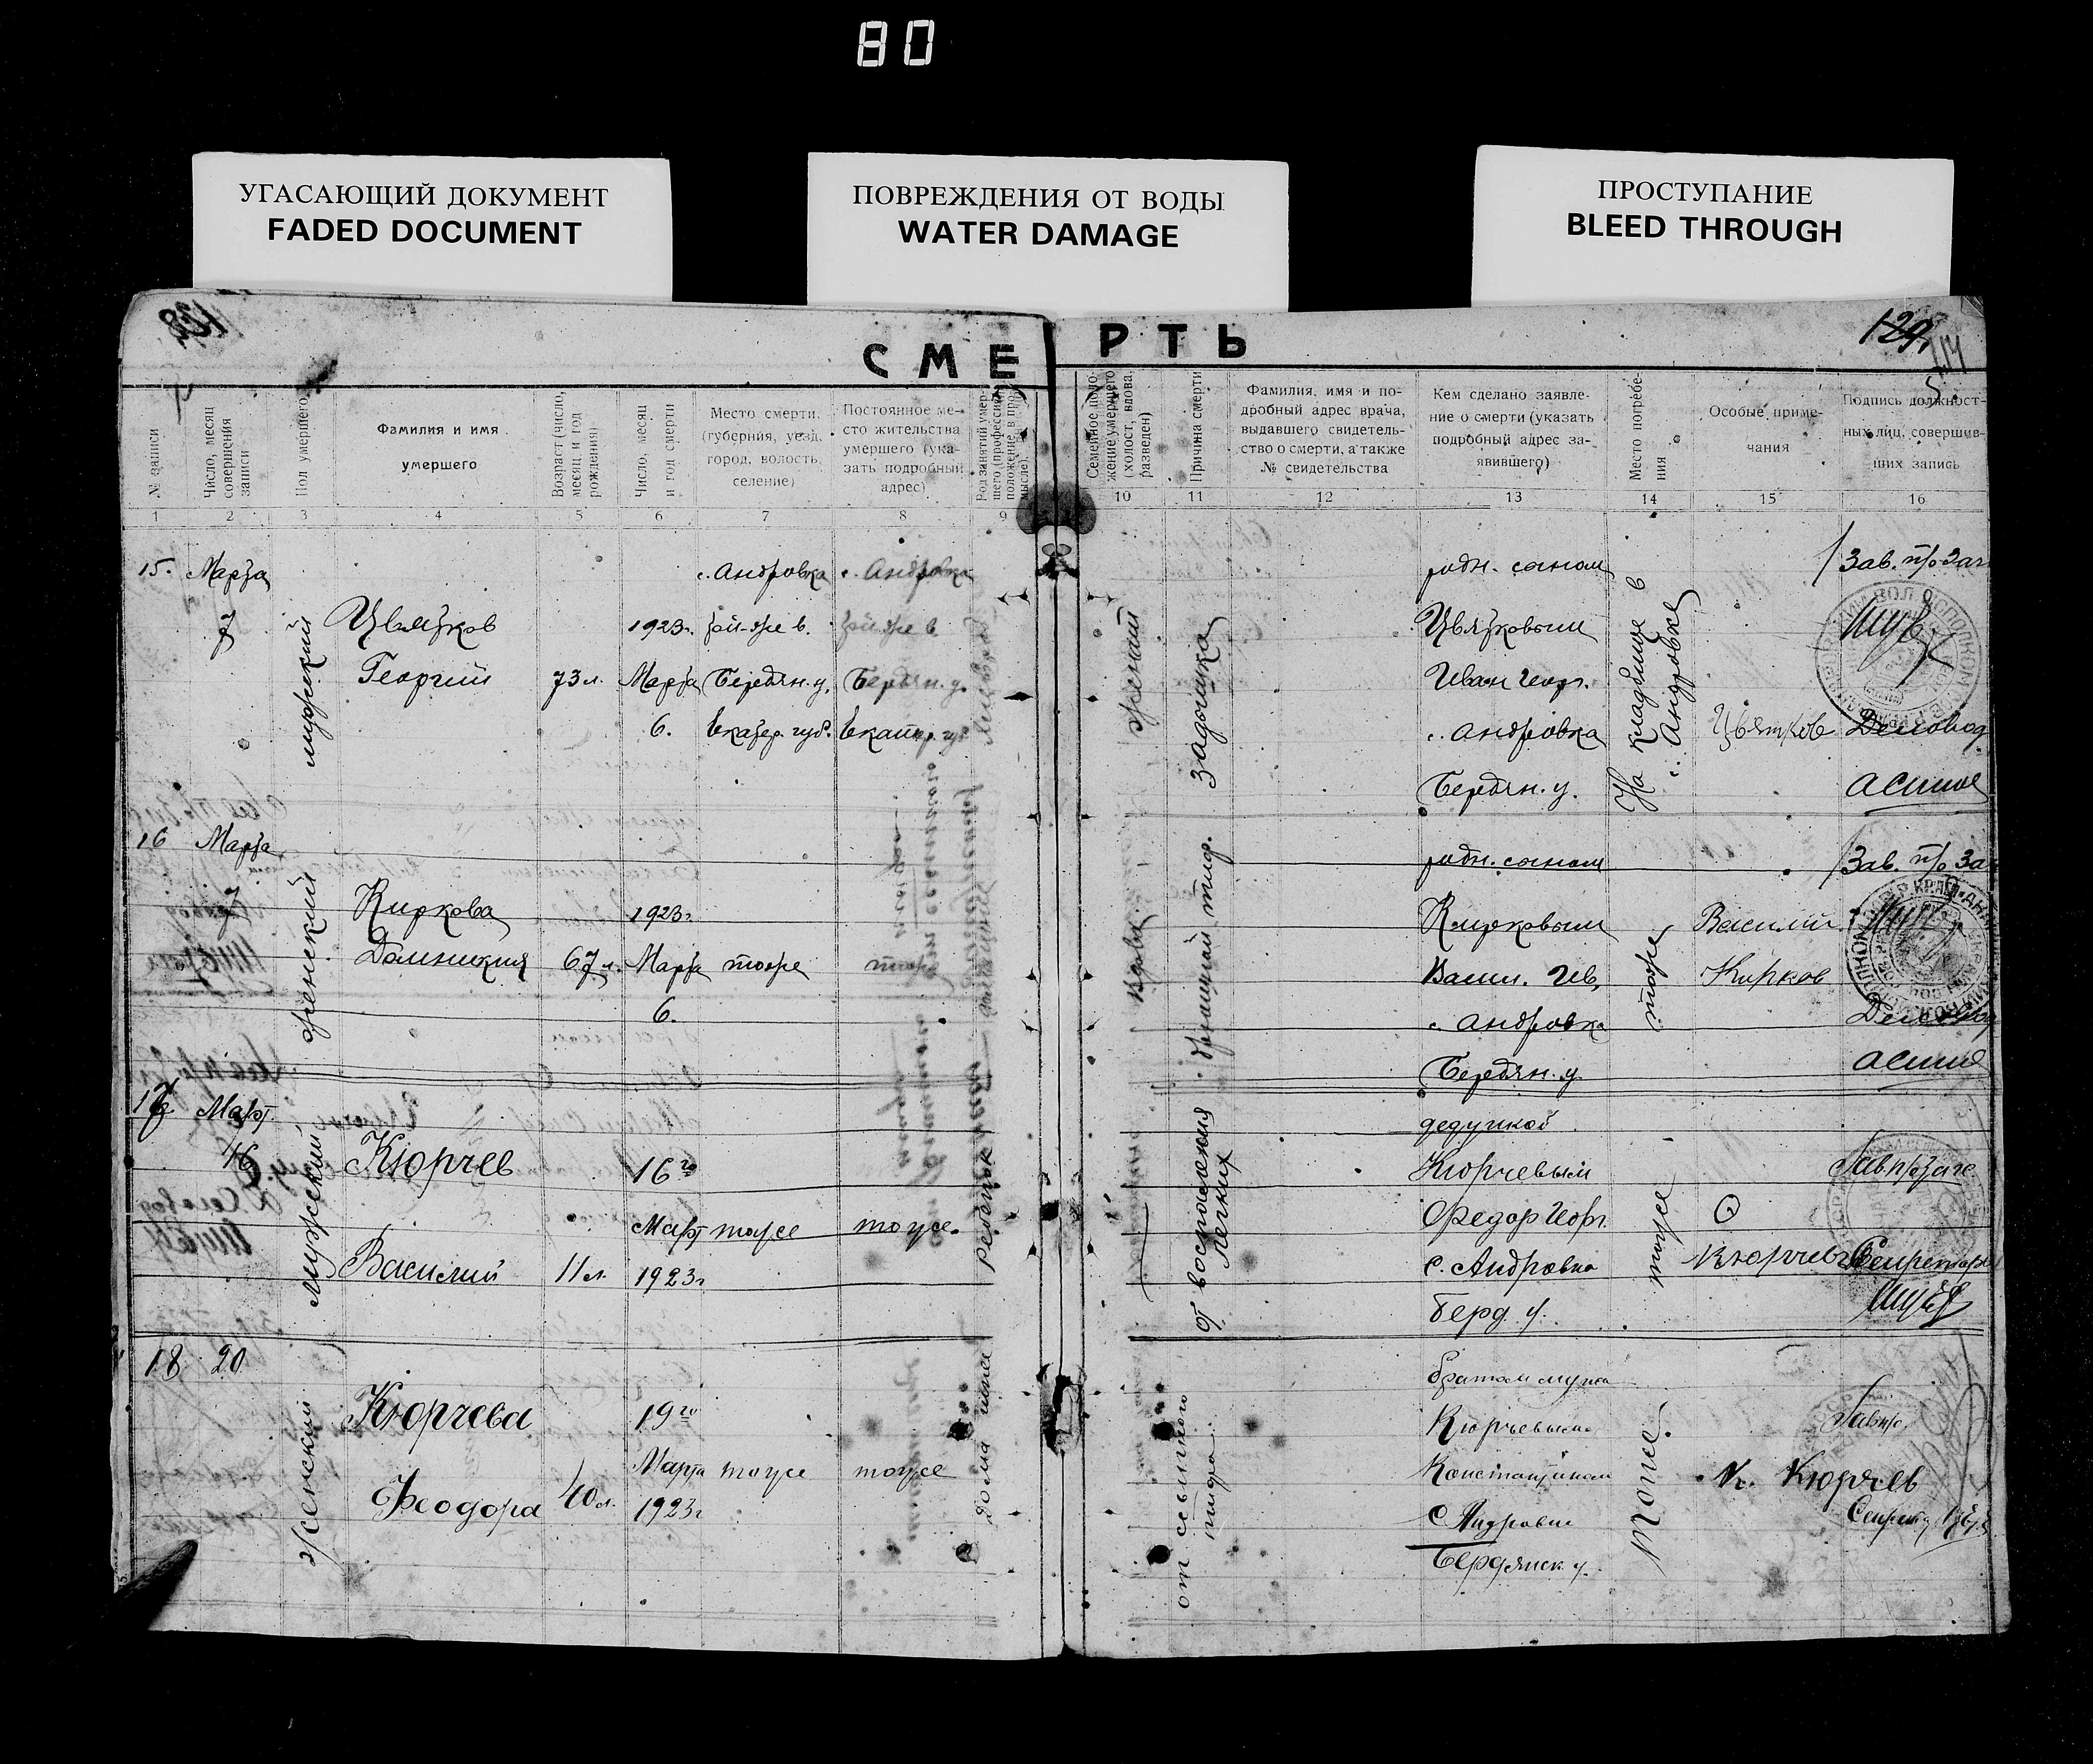 80
УГАСАЮЩИЙ ДОКУМЕНТ
FADED DOCUMENT
ПОВРЕЖДЕНИЯ ОТ ВОДЫ
WATER DAMAGE
ПРОСТУПАНИЕ
BLEED THROUGH
129
СМЕРТЬ
№ записи
Число, месяц совершения записи
Пол умершего
Фамилия и имя умершего
Возраст (число, месяц и год рождения)
Число, месяц и год смерти
Место смерти (губерния, уезд, город, волость, селение)
Постоянное место жительства умершего (указать подробный адрес)
Семейное положение умершего (холост, вдова, разведен)
Причина смерти
Фамилия, имя и подробный адрес врача, выдавшего свидетельство о смерти, а также № свидетельства
Кем сделано заявление о смерти (указать подробный адрес заявившего)
Место погребения
Особые примечания
Подпись должностных лиц, совершивших запись
1 2 3 4 5 6 7 8 9 10 11 12 13 14 15 16
15. Марта
7
мужской
Цвятков
Георгий
73 л.
1923 г.
Марта
6.
с. Андровка
той-же в.
Бердян. у.
Екатер. губ.
с. Андровка
той же в
Бердян. у.
Екатер. гу
женат
задышка
родн. сыном
Цвятковым
Иван Геор.
с. Андровка
Бердян. у.
На кладбище в
с. Андровке
Цвятков
Зав. п/о Заг
Деловод
16 Марта
7
женский
Киркова
Домникия
67 л.
1923 г.
Марта
6.
тоже
тоже
вдова
брюшной тиф.
родн. сыном
Кирковым
Васил. Ив.
с. Андровка
Бердян. у.
тоже
Василий
Кирков
Зав. п/о Заг
Деловод
17 Март.
16
мужской
Кюрчев
Василий
11 л.
16 го
Март
1923 г
тоже
тоже.
ребенок
От воспаления
легких
дедушкой
Кюрчевым
Федор Геор.
с. Андровка
Берд. у.
тоже
Кюрчев
Завп/оЗаге
Секретарь
18 20
женский
Кюрчева
Феодора
40 л.
19 го
Марта
1923 г
тоже
тоже
от сыпного
тифа.
братом мужа
Кюрчевым
Константином
С Андровка
Бердянск у.
Тоже.
К. Кюрчев